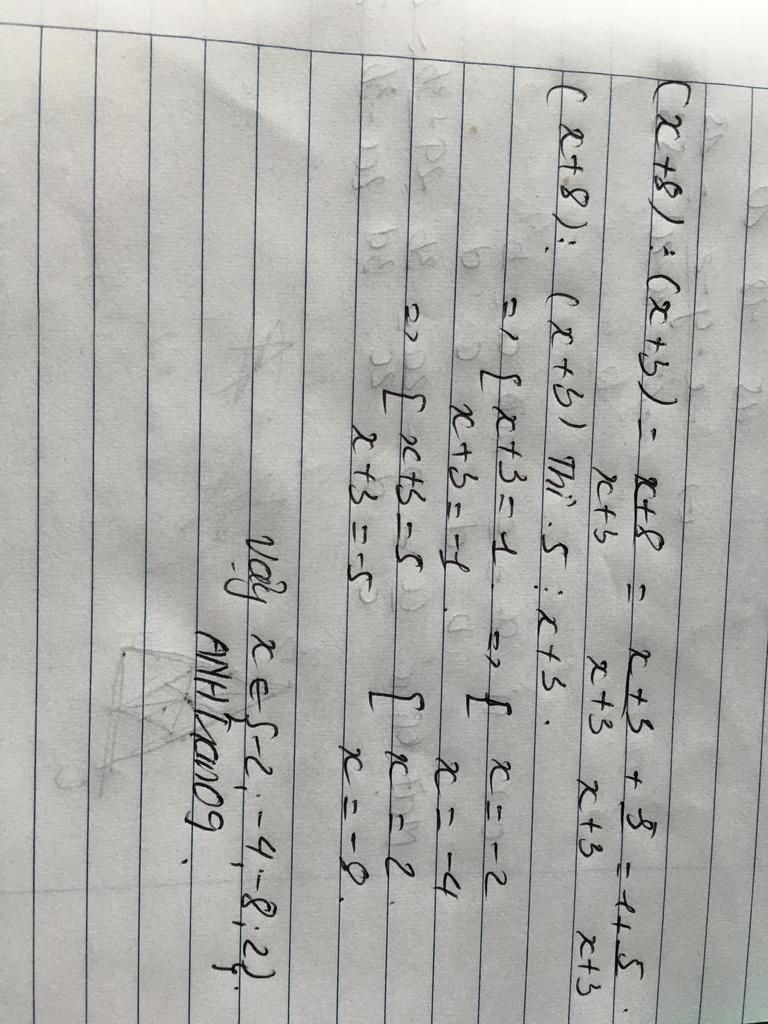 (x+8) : (x+3) = x+8/x+3 = x+3/x+3 + 5/x+3 = 1+ 5/x+3 .
(x+8) ⋮ (x+3) Thì 5 ⋮ x+3 .
=> [ x+3 = 1 => [ x = -2
x+3 = -1 x = -4
=> [ x+3 = 5 [ x = 2
x+3 = -5 x = -8.
Vậy x ∈ {-2, -4, -8, 2}.
ANHTran09.